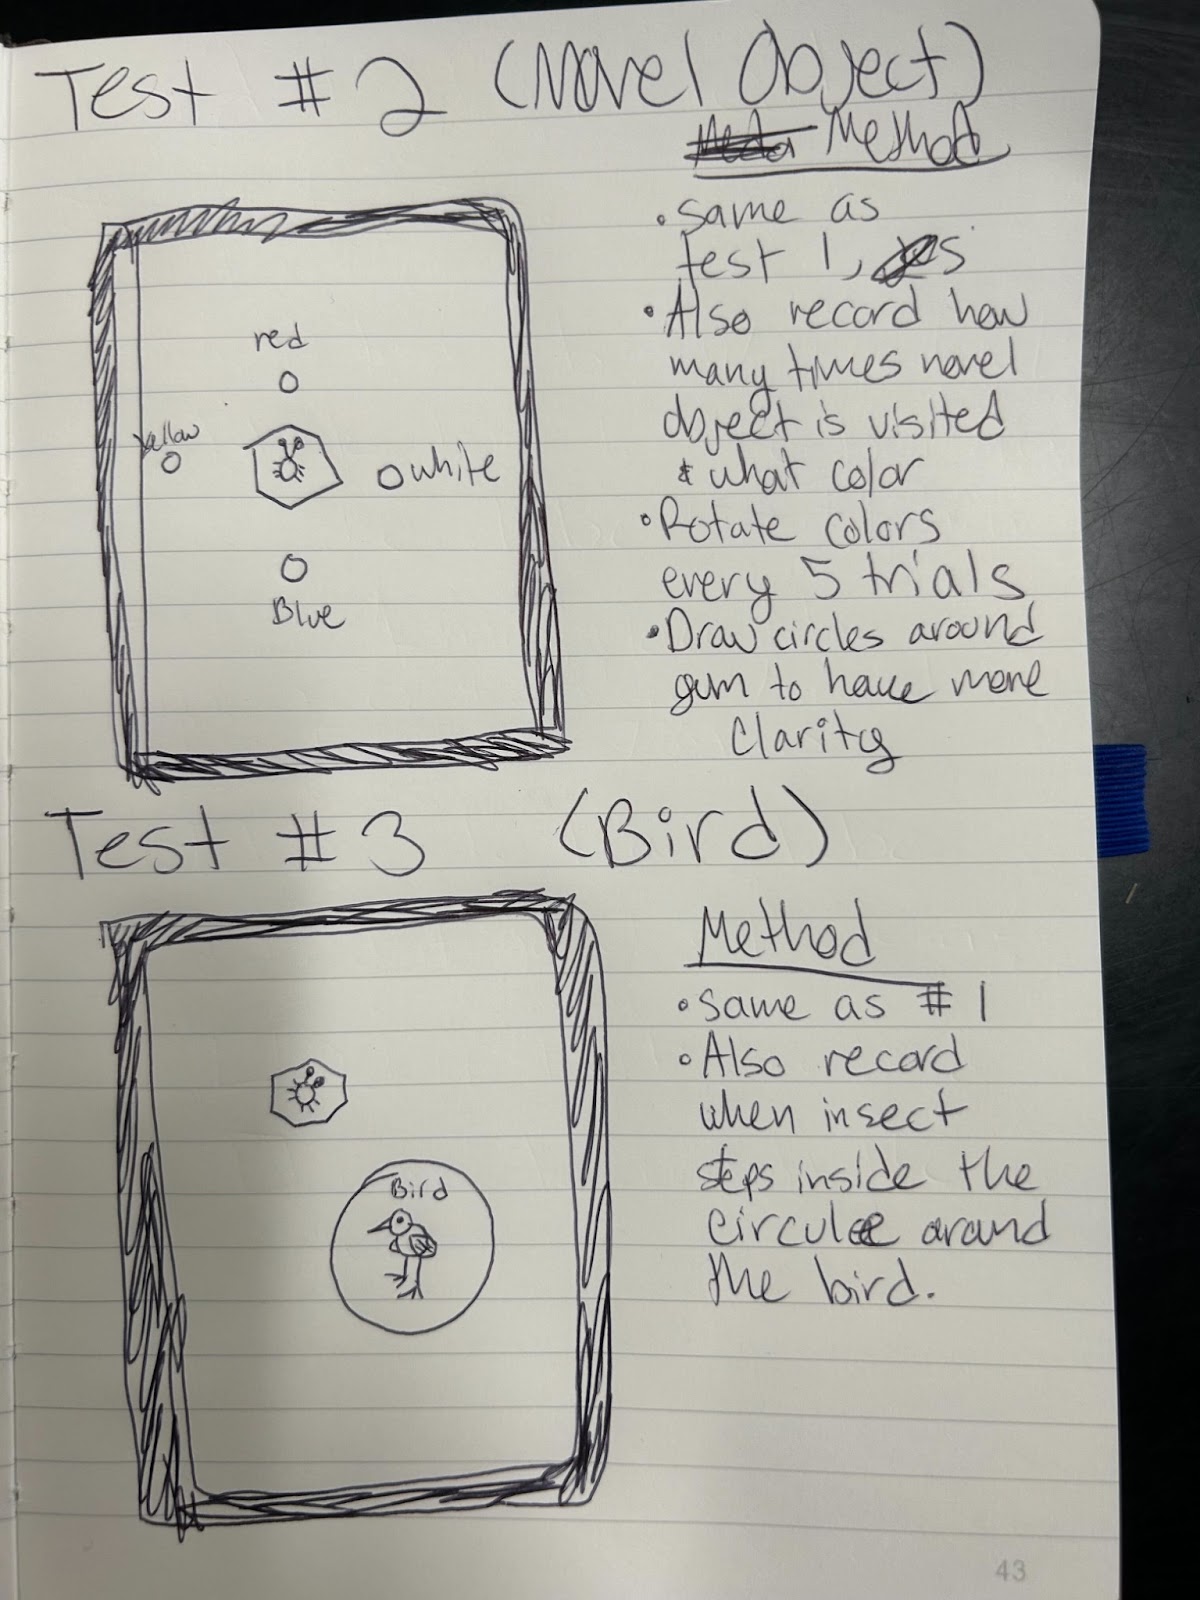 Test #2 (Novel Object)
Method
• same as
test 1,
• Also record how
many times novel
object is visited
& what color
• Rotate colors
every 5 trials
• Draw circles around
gum to have more
Clarity
red
yellow
white
Blue
Test #3 (Bird)
Method
• same as #1
• Also record
when insect
steps inside the
circule around
the bird.
Bird
43